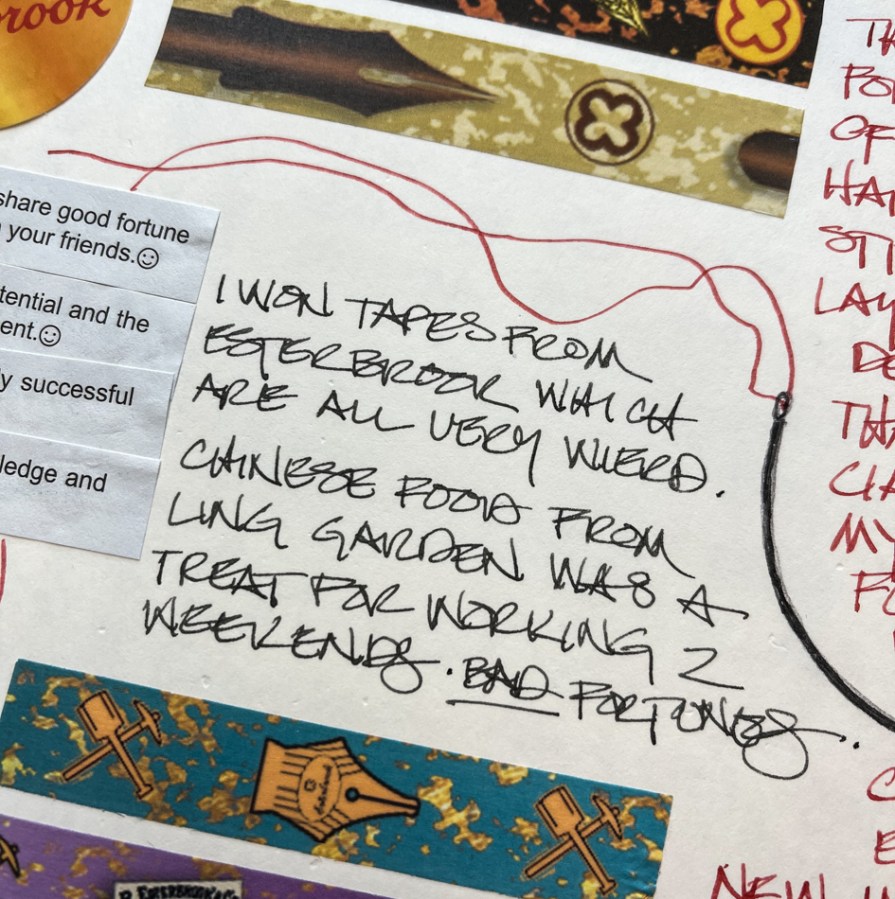 rook
share good fortune
your friends.☺
tential and the
ent.☺
y successful
ledge and
I WON TAPES FROM
ESTERBROOK WHICH
ARE ALL VERY WIERD.
CHINESE FOOD FROM
LING GARDEN WAS A
TREAT FOR WORKING 2
WEEKENDS. BAD FORTUNES.
TH
FO
OF
HA
STY
LAY
DE
THA
CIA
MY
FO
C
E
NEW